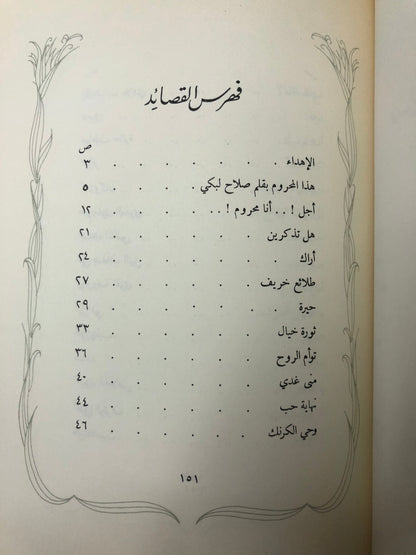 فهرس القصائد
ص
الإهداء . . . . . . . ٣
هذا المحروم بقلم صلاح لبكي . . . . ٥
أجل ! . . أنا محروم ! . . . . . . ١٢
هل تذكرين . . . . . . ٢١
أراك . . . . . . . ٢٤
طلائع خريف . . . . . . ٢٧
حيرة . . . . . . . ٢٩
ثورة خيال . . . . . . ٣٣
توأم الروح . . . . . . ٣٦
منى غدي . . . . . . ٤٠
نهاية حب . . . . . . ٤٤
وحي الكرنك . . . . . . ٤٦
١٥١